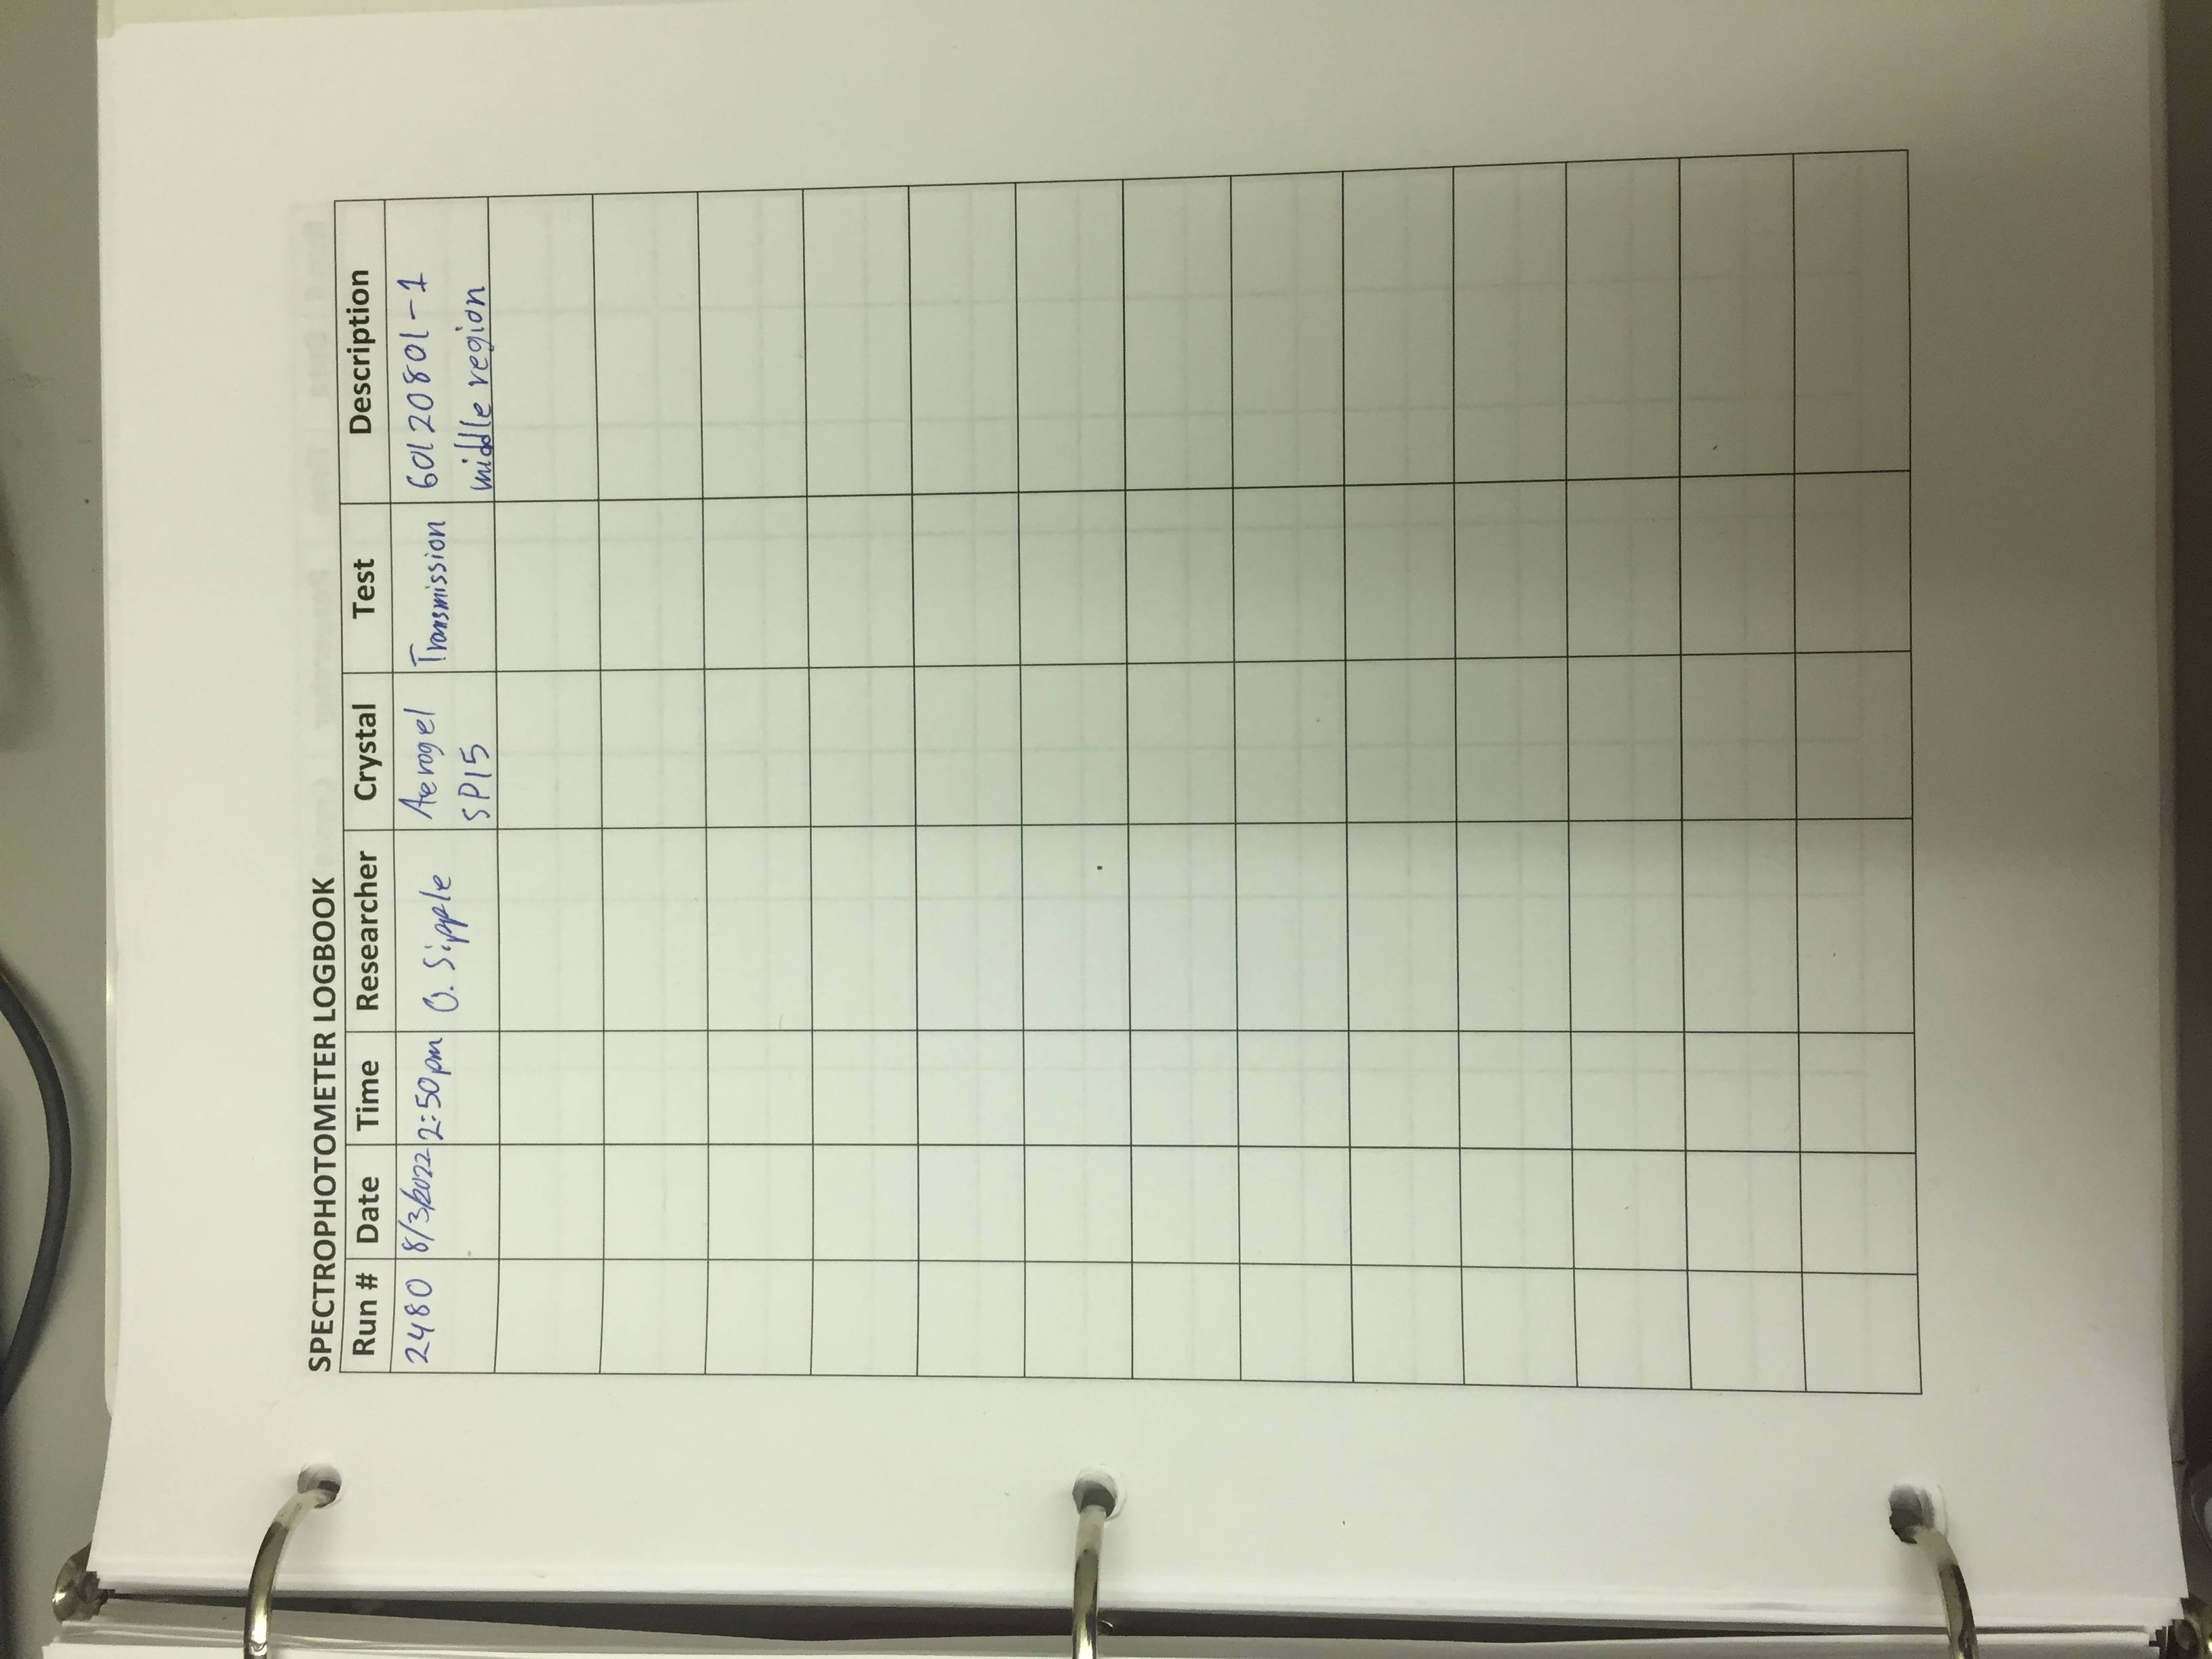 SPECTROPHOTOMETER LOGBOOK
Run # Date Time Researcher Crystal Test Description
2480 8/3/2022 2:50pm O. Sipple Aerogel Transmission 60120801-1
SP15 middle region